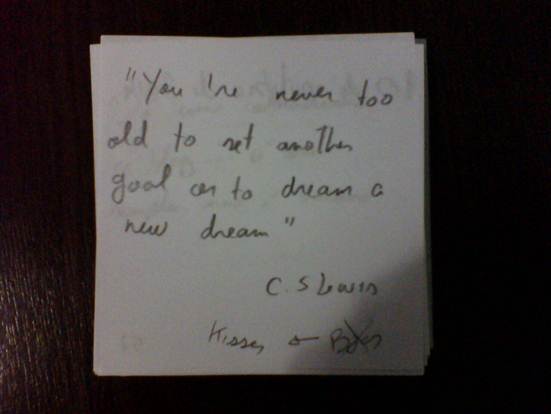 "You're never too
old to set another
goal or to dream a
new dream"
C. S Lewis
Kisses